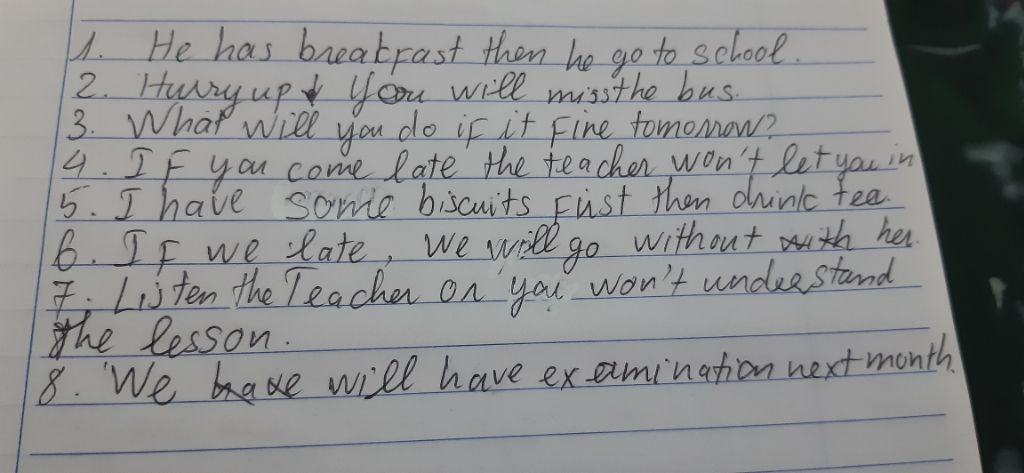 1. He has breakfast then he go to school.
2. Hurry up You will miss the bus.
3. What will you do if it Fine tomorrow?
4. IF you come late the teacher won't let you in
5. I have some biscuits First then drink tea.
6. IF we late, we will go without with her.
7. Listen the Teacher or you won't understand
the lesson.
8. We have will have examination next month.